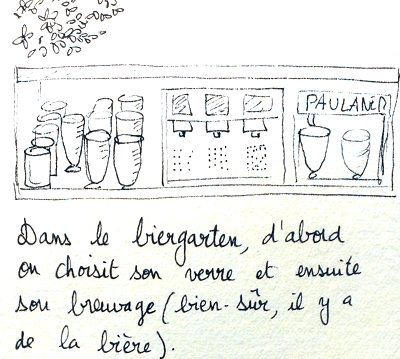 PAULANER
Dans le biergarten, d'abord
on choisit son verre et ensuite
son breuvage (bien-sûr, il y a
de la bière).